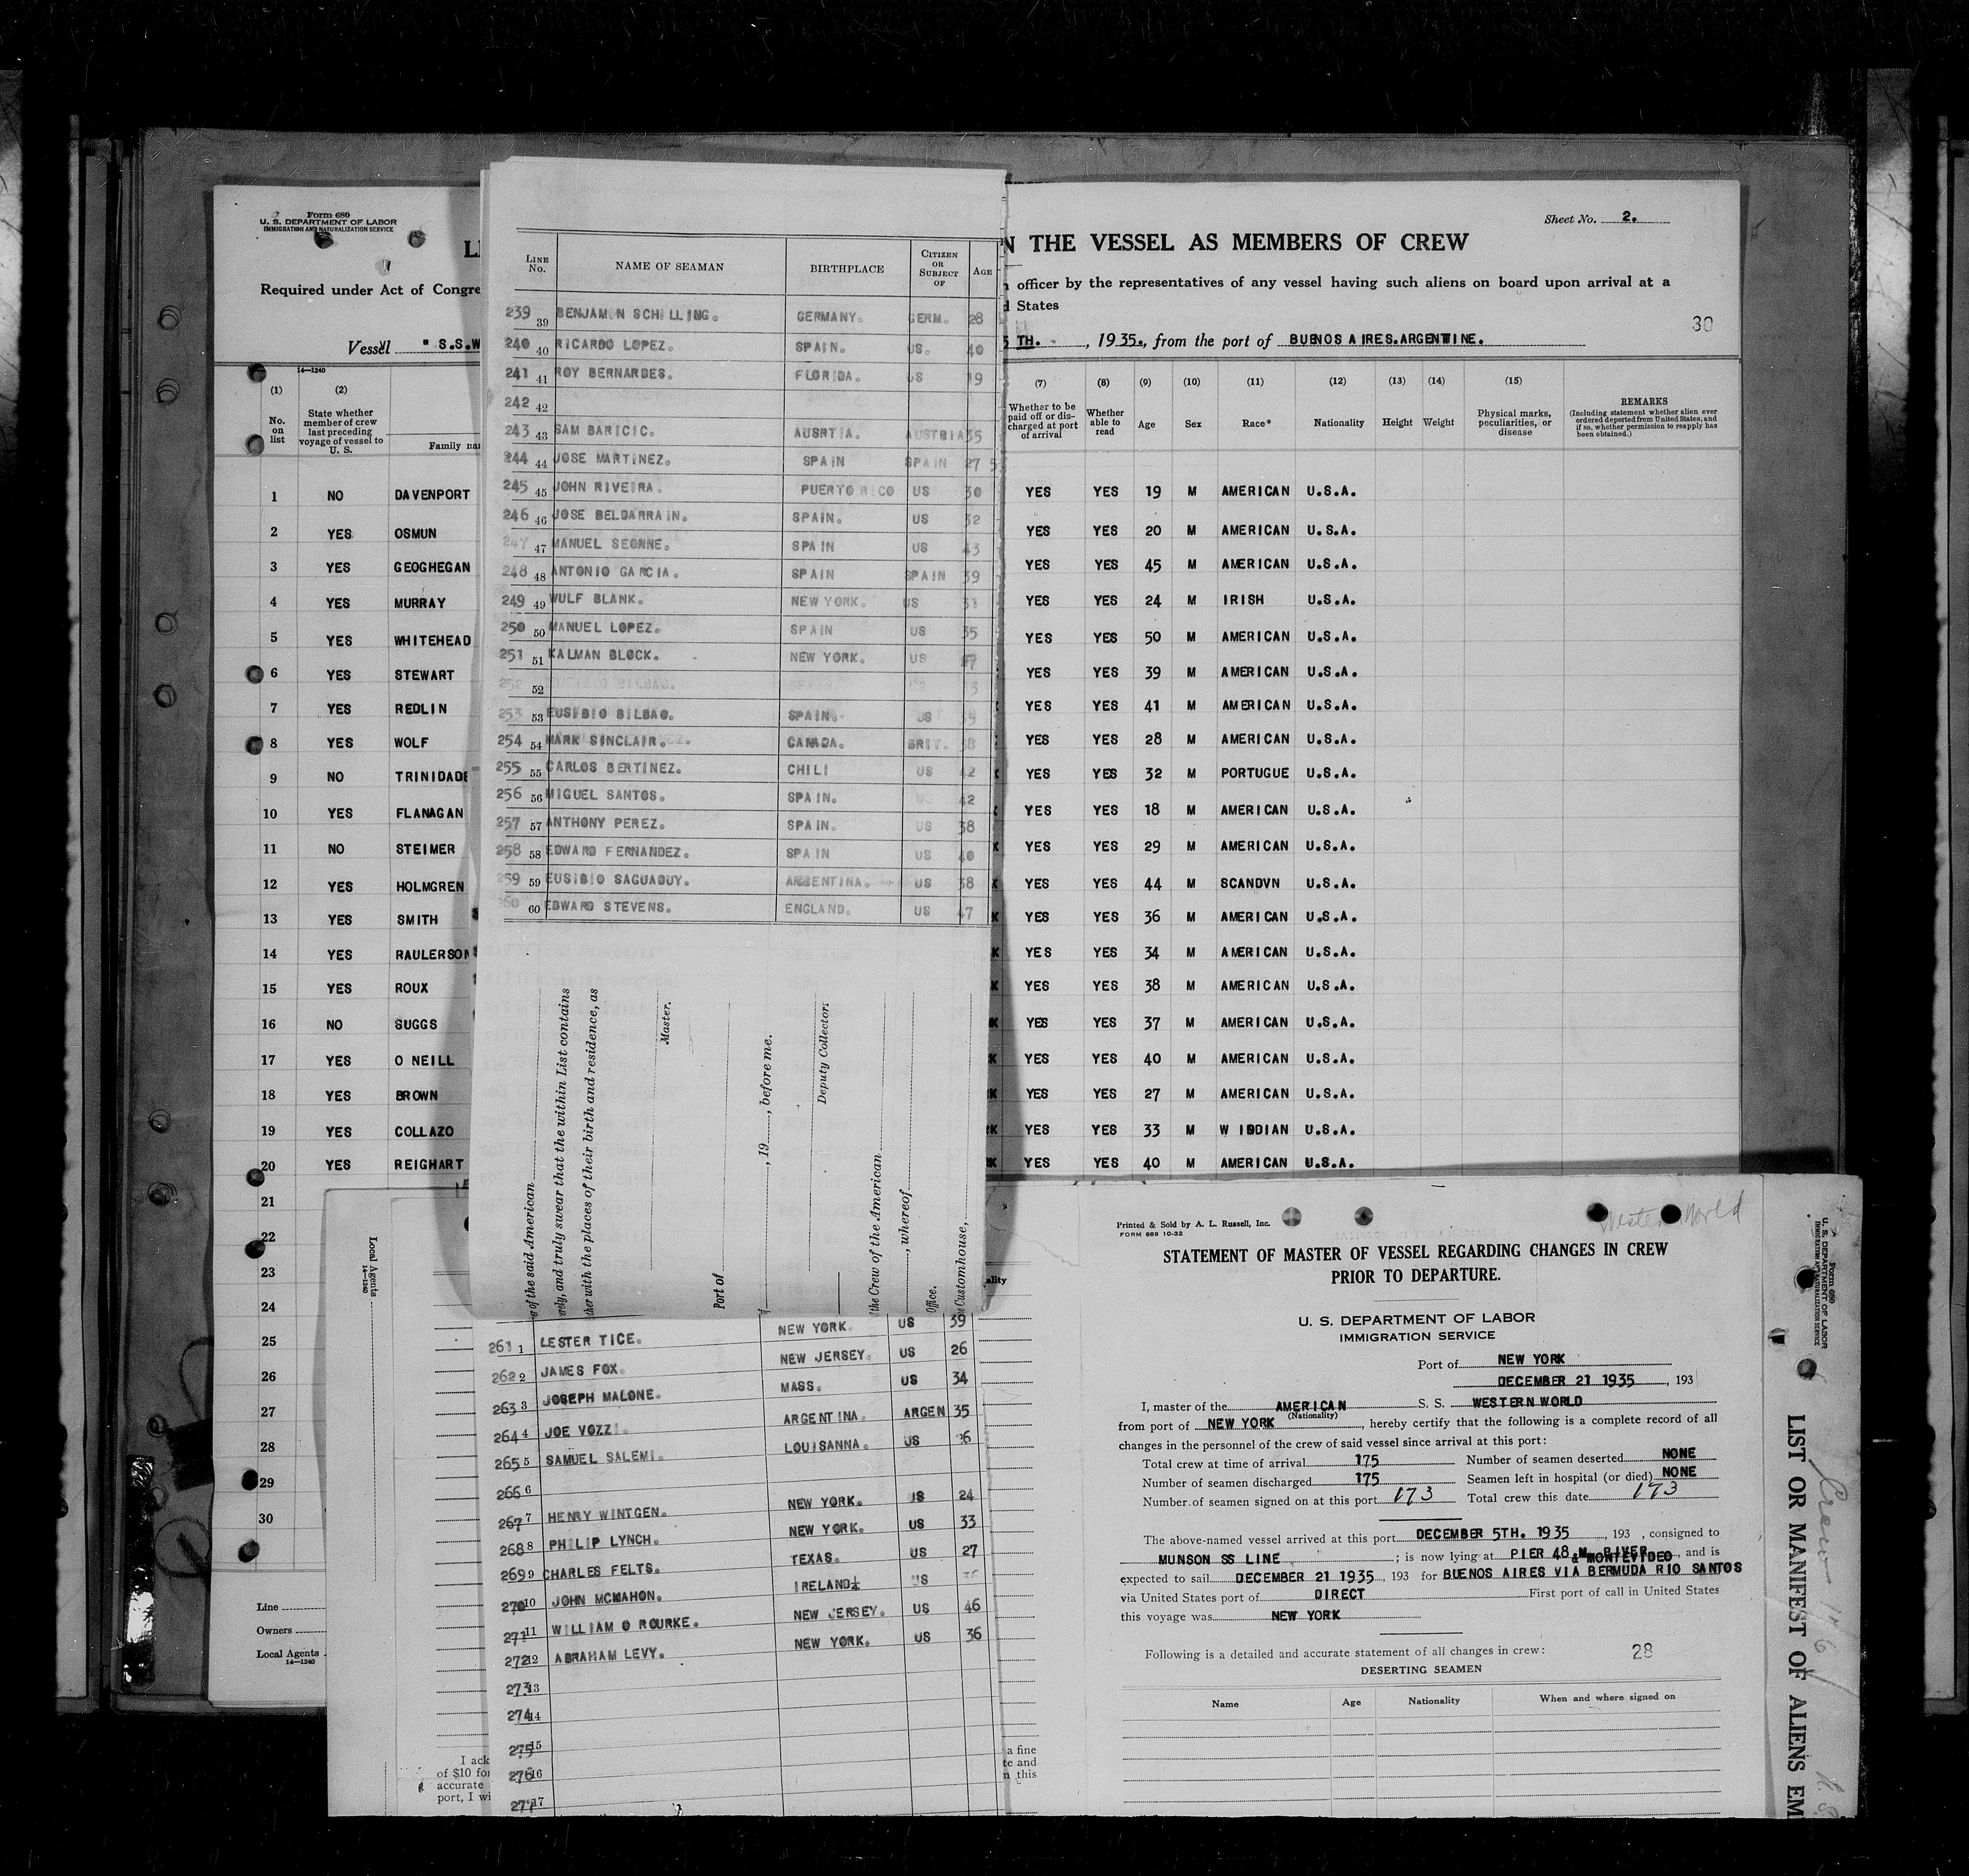 Form 680
U. S. DEPARTMENT OF LABOR
IMMIGRATION AND NATURALIZATION SERVICE
Required under Act of Congre
Vessel " S.S.W
14—1240
(1) (2)
No. on list
State whether member of crew last preceding voyage of vessel to U. S.
Family na
1 NO DAVENPORT
2 YES OSMUN
3 YES GEOGHEGAN
4 YES MURRAY
5 YES WHITEHEAD
6 YES STEWART
7 YES REDLIN
8 YES WOLF
9 NO TRINIDADE
10 YES FLANAGAN
11 NO STEIMER
12 YES HOLMGREN
13 YES SMITH
14 YES RAULERSON
15 YES ROUX
16 NO SUGGS
17 YES O NEILL
18 YES BROWN
19 YES COLLAZO
20 YES REIGHART
21
22
23
24
25
26
27
28
29
30
Line
Owners
Local Agents
14—1240
LINE No. NAME OF SEAMAN BIRTHPLACE CITIZEN OR SUBJECT OF AGE
239 39 BENJAMIN SCHILLING. GERMANY. GERM. 28
240 40 RICARDO LOPEZ. SPAIN. US. 40
241 41 ROY BERNARDES. FLORIDA. US 19
242 42
243 43 SAM BARICIC. AUSRTIA. AUSTRIA 35
244 44 JOSE MARTINEZ. SPAIN SPAIN 27
245 45 JOHN RIVEIRA. PUERTO RICO US 30
246 46 JOSE BELDARRAIN. SPAIN. US 32
247 47 MANUEL SEONNE. SPAIN US 43
248 48 ANTONIO GARCIA. SPAIN SPAIN 39
249 49 WULF BLANK. NEW YORK. US
250 50 MANUEL LOPEZ. SPAIN US 35
251 51 KALMAN BLOCK. NEW YORK. US
252 52
253 53 EUSIBIO BILBAO. SPAIN. US 39
254 54 MARK SINCLAIR. CANADA. BRIT. 38
255 55 CARLOS BERTINEZ. CHILI US 42
256 56 MIGUEL SANTOS. SPAIN. US 42
257 57 ANTHONY PEREZ. SPAIN. US 38
258 58 EDWARD FERNANDEZ. SPAIN US 40
259 59 EUSIBIO SAGUADUY. ARGENTINA. US 38
260 60 EDWARD STEVENS. ENGLAND. US 47
of the said American
rely, and truly swear that the within List contains
her with the places of their birth and residence, as
Master.
Port of
, 19 , before me.
Deputy Collector.
the Crew of the American
, whereof
Office.
Customhouse,
261 1 LESTER TICE. NEW YORK. US 39
262 2 JAMES FOX. NEW JERSEY. US 26
263 3 JOSEPH MALONE. MASS. US 34
264 4 JOE VOZZI. ARGENTINA. ARGEN 35
265 5 SAMUEL SALEMI. LOUISANNA. US
266 6
267 7 HENRY WINTGEN. NEW YORK. US 24
268 8 PHILIP LYNCH. NEW YORK. US 33
269 9 CHARLES FELTS. TEXAS. US 27
270 10 JOHN MCMAHON. IRELAND US
271 11 WILLIAM O ROURKE. NEW JERSEY. US 46
272 12 ABRAHAM LEVY. NEW YORK. US 36
273 13
274 14
275 15
276 16
277 17
Sheet No. 2.
N THE VESSEL AS MEMBERS OF CREW
officer by the representatives of any vessel having such aliens on board upon arrival at a
States
30
TH. , 1935., from the port of BUENOS AIRES.ARGENTINE.
(7) (8) (9) (10) (11) (12) (13) (14) (15)
Whether to be paid off or discharged at port of arrival
Whether able to read
Age Sex Race* Nationality Height Weight
Physical marks, peculiarities, or disease
REMARKS
(Including statement whether alien ever ordered deported from United States, and if so, whether permission to reapply has been obtained.)
YES YES 19 M AMERICAN U.S.A.
YES YES 20 M AMERICAN U.S.A.
YES YES 45 M AMERICAN U.S.A.
YES YES 24 M IRISH U.S.A.
YES YES 50 M AMERICAN U.S.A.
YES YES 39 M AMERICAN U.S.A.
YES YES 41 M AMERICAN U.S.A.
YES YES 28 M AMERICAN U.S.A.
YES YES 32 M PORTUGUE U.S.A.
YES YES 18 M AMERICAN U.S.A.
YES YES 29 M AMERICAN U.S.A.
YES YES 44 M SCANDVN U.S.A.
YES YES 36 M AMERICAN U.S.A.
YES YES 34 M AMERICAN U.S.A.
YES YES 38 M AMERICAN U.S.A.
YES YES 37 M AMERICAN U.S.A.
YES YES 40 M AMERICAN U.S.A.
YES YES 27 M AMERICAN U.S.A.
YES YES 33 M W INDIAN U.S.A.
YES YES 40 M AMERICAN U.S.A.
Local Agents
14—1240
ality
I ack
of $10 for
accurate
port, I wi
a fine
te and
n this
Western World
Printed & Sold by A. L. Russell, Inc.
FORM 689 10-32
STATEMENT OF MASTER OF VESSEL REGARDING CHANGES IN CREW
PRIOR TO DEPARTURE.
U. S. DEPARTMENT OF LABOR
IMMIGRATION SERVICE
Port of NEW YORK
DECEMBER 21 1935 , 193
I, master of the AMERICAN S. S. WESTERN WORLD
(Nationality)
from port of NEW YORK , hereby certify that the following is a complete record of all
changes in the personnel of the crew of said vessel since arrival at this port:
Total crew at time of arrival 175 Number of seamen deserted NONE
Number of seamen discharged 175 Seamen left in hospital (or died) NONE
Number of seamen signed on at this port 173 Total crew this date 173
The above-named vessel arrived at this port DECEMBER 5TH. 1935 , 193 , consigned to
MUNSON SS LINE ; is now lying at PIER 48 N. RIVER , and is
& MONTEVIDEO
expected to sail DECEMBER 21 1935 , 193 for BUENOS AIRES VIA BERMUDA RIO SANTOS
via United States port of DIRECT First port of call in United States
this voyage was NEW YORK
Following is a detailed and accurate statement of all changes in crew: 28
DESERTING SEAMEN
Name Age Nationality When and where signed on
Form 680
U. S. DEPARTMENT OF LABOR
IMMIGRATION AND NATURALIZATION SERVICE
LIST OR MANIFEST OF ALIENS EM
Crew